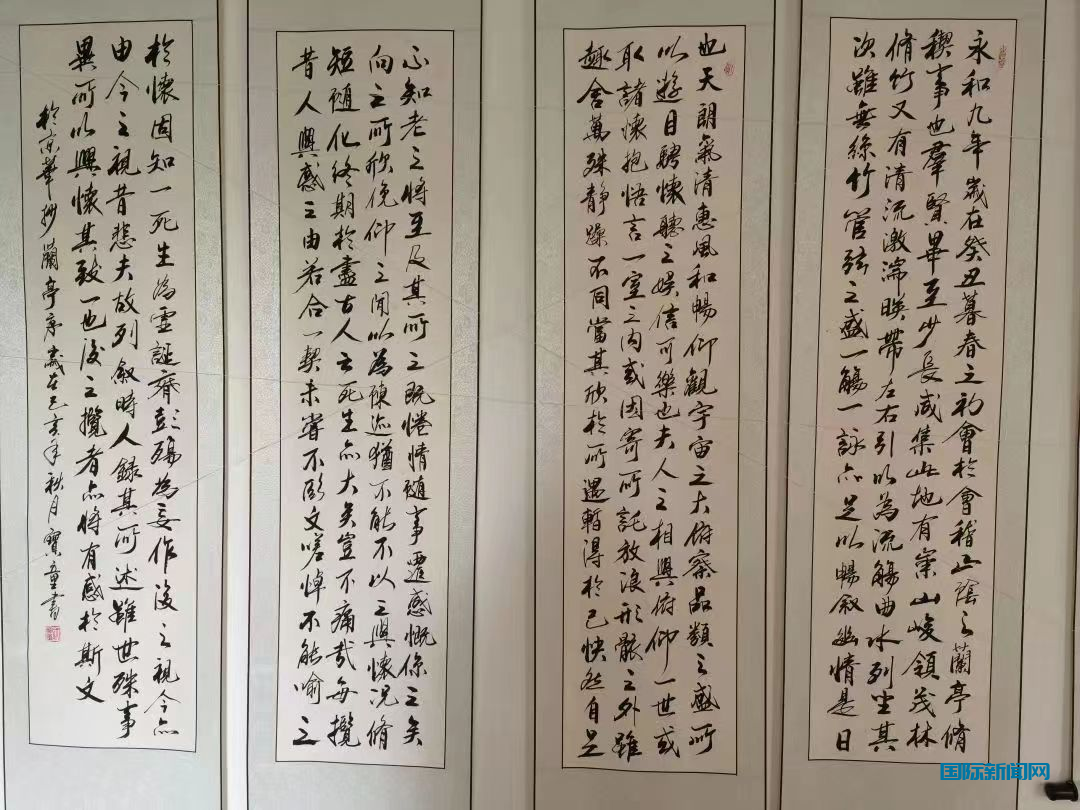 永和九年歲在癸丑暮春之初會於會稽山陰之蘭亭脩
稧事也羣賢畢至少長咸集此地有崇山峻領茂林
脩竹又有清流激湍暎帶左右引以為流觴曲水列坐其
次雖無絲竹管弦之盛一觴一詠亦足以暢敘幽情是日
也天朗氣清惠風和暢仰觀宇宙之大俯察品類之盛所
以遊目騁懷聽之娛信可樂也夫人之相與俯仰一世或
取諸懷抱悟言一室之內或因寄所託放浪形骸之外雖
趣舍萬殊静躁不同當其欣於所遇暫得於己快然自足
不知老之將至及其所之既惓情隨事遷感慨係之矣
向之所欣俛仰之間以為陳迹猶不能不以之興懷況脩
短隨化終期於盡古人云死生亦大矣豈不痛哉每攬
昔人興感之由若合一契未嘗不臨文嗟悼不能喻之
於懷固知一死生為虛誕齊彭殤為妄作後之視今亦
由今之視昔悲夫故列敘時人錄其所述雖世殊事
異所以興懷其致一也後之攬者亦將有感於斯文
於京華抄蘭亭序歲在己亥年秋月寶童書
国际新闻网